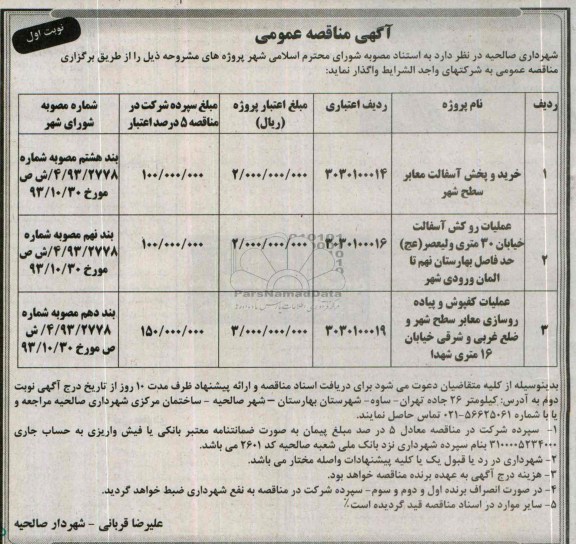 نوبت اول
آگهی مناقصه عمومی
شهرداری صالحیه در نظر دارد به استناد مصوبه شورای محترم اسلامی شهر پروژه های مشروحه ذیل را از طریق برگزاری
مناقصه عمومی به شرکتهای واجد الشرایط واگذار نماید:
ردیف نام پروژه ردیف اعتباری مبلغ اعتبار پروژه مبلغ سپرده شرکت در شماره مصوبه
(ریال) مناقصه ۵ درصد اعتبار شورای شهر
۱ خرید و پخش آسفالت معابر ۳۰۳۰۱۰۰۰۱۴ ۲/۰۰۰/۰۰۰/۰۰۰ ۱۰۰/۰۰۰/۰۰۰ بند هشتم مصوبه شماره
سطح شهر ۴/۹۳/۲۷۷۸/ش ص
مورخ ۹۳/۱۰/۳۰
عملیات رو کش آسفالت
۲ خیابان ۳۰ متری ولیعصر(عج) ۳۰۳۰۱۰۰۰۱۶ ۲/۰۰۰/۰۰۰/۰۰۰ ۱۰۰/۰۰۰/۰۰۰ بند نهم مصوبه شماره
حد فاصل بهارستان نهم تا ۴/۹۳/۲۷۷۸/ش ص
المان ورودی شهر مورخ ۹۳/۱۰/۳۰
عملیات کفپوش و پیاده
۳ روسازی معابر سطح شهر و ۳۰۳۰۱۰۰۰۱۹ ۳/۰۰۰/۰۰۰/۰۰۰ ۱۵۰/۰۰۰/۰۰۰ بند دهم مصوبه شماره
ضلع غربی و شرقی خیابان ۴/۹۳/۲۷۷۸/ ش
۱۶ متری شهدا ص مورخ ۹۳/۱۰/۳۰
ParsNamadData
بدینوسیله از کلیه متقاضیان دعوت می شود برای دریافت اسناد مناقصه و ارائه پیشنهاد ظرف مدت ۱۰ روز از تاریخ درج آگهی نوبت
دوم به آدرس: کیلومتر ۲۶ جاده تهران- ساوه- شهرستان بهارستان – شهر صالحیه - ساختمان مرکزی شهرداری صالحیه مراجعه و
یا با شماره ۵۶۶۲۵۰۶۱-۰۲۱ تماس حاصل نمایند.
۱- سپرده شرکت در مناقصه معادل ۵ در صد مبلغ پیمان به صورت ضمانتنامه معتبر بانکی یا فیش واریزی به حساب جاری
۳۱۰۰۰۰۵۲۳۴۰۰۰ بنام سپرده شهرداری نزد بانک ملی شعبه صالحیه کد ۲۶۰۱ می باشد.
۲- شهرداری در رد یا قبول یک یا کلیه پیشنهادات واصله مختار می باشد.
۳- هزینه درج آگهی به عهده برنده مناقصه خواهد بود.
۴- در صورت انصراف برنده اول و دوم و سوم- سپرده شرکت در مناقصه به نفع شهرداری ضبط خواهد گردید.
۵- سایر موارد در اسناد مناقصه قید گردیده است٪
علیرضا قربانی - شهردار صالحیه